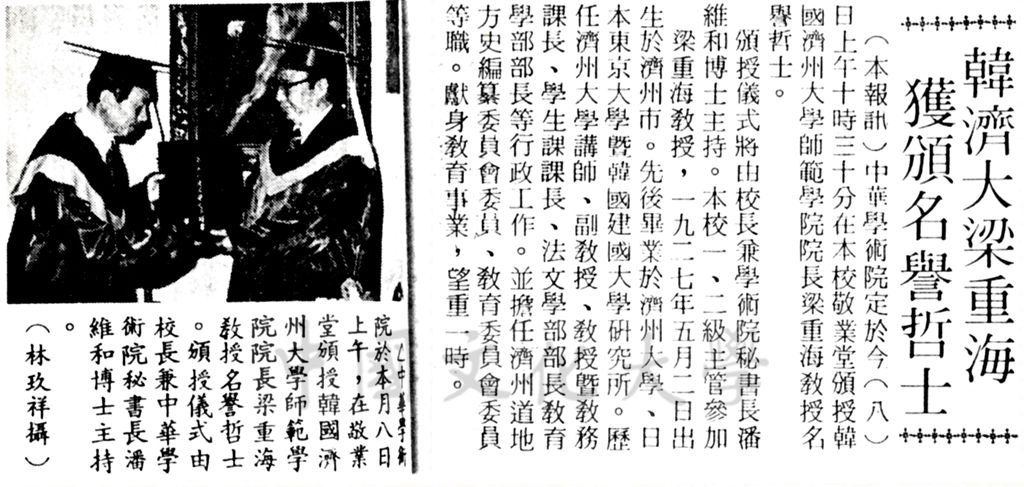 韓濟大梁重海
獲頒名譽哲士
（本報訊）中華學術院定於今（八）
日上午十時三十分在本校敬業堂頒授韓
國濟州大學師範學院院長梁重海教授名
譽哲士。
頒授儀式將由校長兼學術院秘書長潘
維和博士主持。本校一、二級主管參加
梁重海教授，一九二七年五月二日出
生於濟州市。先後畢業於濟州大學、日
本東京大學暨韓國建國大學研究所。歷
任濟州大學講師、副教授、教授暨教務
課長、學生課課長、法文學部部長教育
學部部長等行政工作。並擔任濟州道地
方史編纂委員會委員、教育委員會委員
等職。獻身教育事業，望重一時。
中華學術
院於本月八日
上午，在敬業
堂頒授韓國濟
州大學師範學
院院長梁重海
教授名譽哲士
。頒授儀式由
校長兼中華學
術院秘書長潘
維和博士主持
。
（林玫祥攝）
中國文化大學